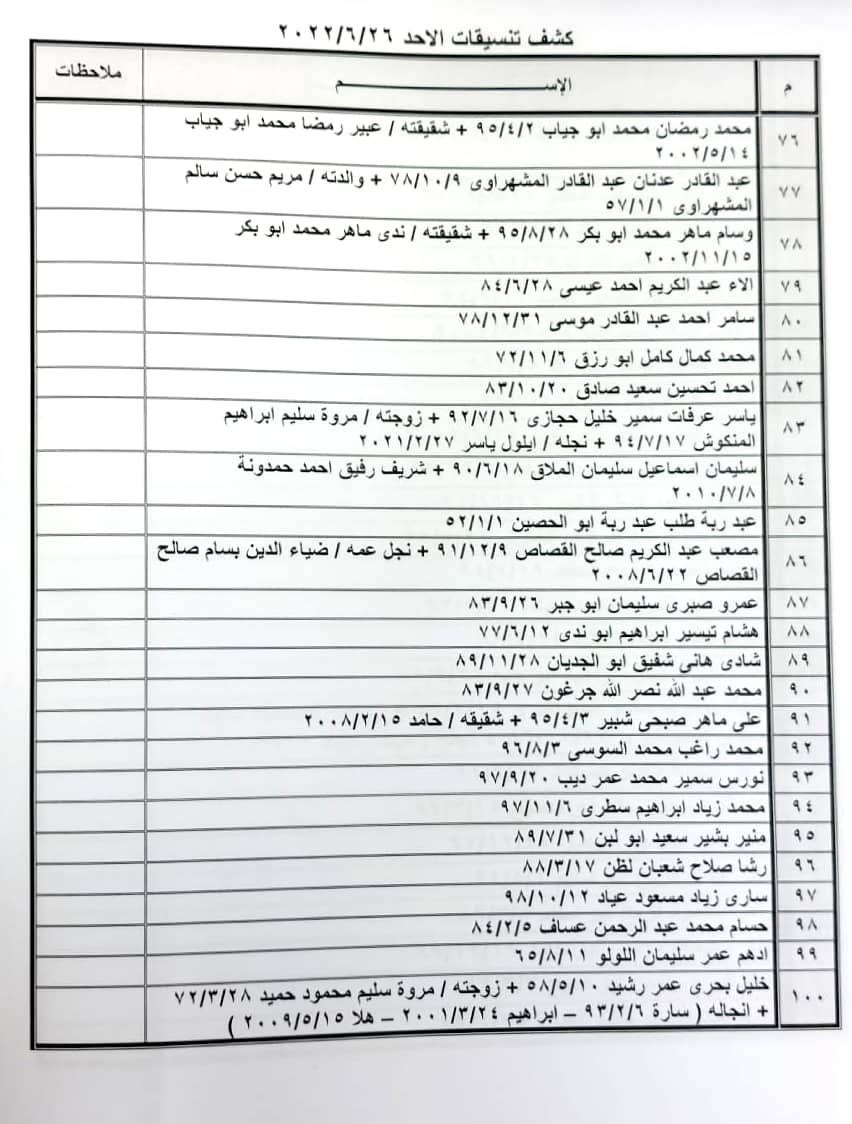 كشف تنسيقات الاحد ٢٠٢٢/٦/٢٦
م الإســـــــــم ملاحظات
٧٦ محمد رمضان محمد ابو جياب ٩٥/٤/٢ + شقيقته / عبير رمضا محمد ابو جياب
٢٠٠٢/٥/١٤
٧٧ عبد القادر عدنان عبد القادر المشهراوى ٧٨/١٠/٩ + والدته / مريم حسن سالم
المشهراوى ٥٧/١/١
٧٨ وسام ماهر محمد ابو بكر ٩٥/٨/٢٨ + شقيقته / ندى ماهر محمد ابو بكر
٢٠٠٢/١١/١٥
٧٩ الاء عبد الكريم احمد عيسى ٨٤/٦/٢٨
٨٠ سامر احمد عبد القادر موسى ٧٨/١٢/٣١
٨١ محمد كمال كامل ابو رزق ٧٢/١١/٦
٨٢ احمد تحسين سعيد صادق ٨٣/١٠/٢٠
٨٣ ياسر عرفات سمير خليل حجازى ٩٢/٧/١٦ + زوجته / مروة سليم ابراهيم
المنكوش ٩٤/٧/١٧ + نجله / ايلول ياسر ٢٠٢١/٢/٢٧
٨٤ سليمان اسماعيل سليمان الملاق ٩٠/٦/١٨ + شريف رفيق احمد حمدونة
٢٠١٠/٧/٨
٨٥ عبد ربة طلب عبد ربة ابو الحصين ٥٢/١/١
٨٦ مصعب عبد الكريم صالح القصاص ٩١/١٢/٩ + نجل عمه / ضياء الدين بسام صالح
القصاص ٢٠٠٨/٦/٢٢
٨٧ عمرو صبرى سليمان ابو جبر ٨٣/٩/٢٦
٨٨ هشام تيسير ابراهيم ابو ندى ٧٧/٦/١٢
٨٩ شادى هانى شفيق ابو الجديان ٨٩/١١/٢٨
٩٠ محمد عبد الله نصر الله جرغون ٨٣/٩/٢٧
٩١ على ماهر صبحى شبير ٩٥/٤/٣ + شقيقه / حامد ٢٠٠٨/٢/١٥
٩٢ محمد راغب محمد السوسى ٩٦/٨/٣
٩٣ نورس سمير محمد عمر ديب ٩٧/٩/٢٠
٩٤ محمد زياد ابراهيم سطرى ٩٧/١١/٦
٩٥ منير بشير سعيد ابو لبن ٨٩/٧/٣١
٩٦ رشا صلاح شعبان لظن ٨٨/٣/١٧
٩٧ سارى زياد مسعود عياد ٩٨/١٠/١٢
٩٨ حسام محمد عبد الرحمن عساف ٨٤/٢/٥
٩٩ ادهم عمر سليمان اللولو ٦٥/٨/١١
١٠٠ خليل بحرى عمر رشيد ٥٨/٥/١٠ + زوجته / مروة سليم محمود حميد ٧٢/٣/٢٨
+ انجاله ( سارة ٩٣/٢/٦ – ابراهيم ٢٠٠١/٣/٢٤ – هلا ٢٠٠٩/٥/١٥ )